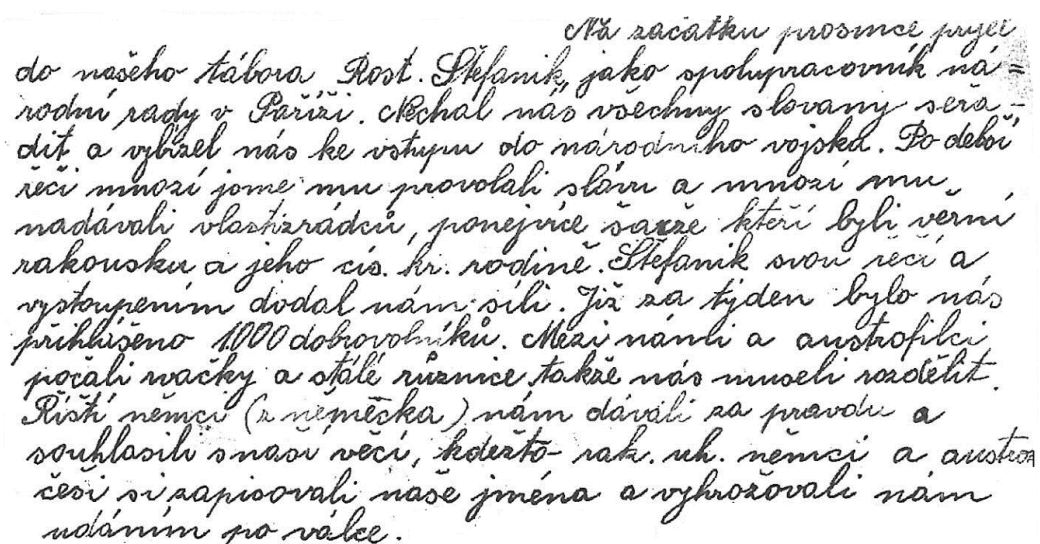 Na začátku prosince přijel
do našeho tábora Rost. Štefanik, jako spolupracovník ná=
rodní rady v Paříži. Nechal nás všechny slovany seřa-
dit a vybízel nás ke vstupu do národního vojska. Po delší
řeči mnozí jsme mu provolali slávu a mnozí mu
nadávali vlastizrádců, ponejvíce šarže kteří byli verní
rakousku a jeho cís. kr. rodině. Štefanik svou řečí a
vystoupením dodal nám síli. Již za týden bylo nás
přihlášeno 1000 dobrovolníků. Mezi námi a austrofilci
počali rvačky a stálé různice, takže nás museli rozdělit.
Říští němci (z německa) nám dávali za pravdu a
souhlasili s naší věcí, kdežto rak. uh. němci a austro
češi si zapisovali naše jména a vyhrožovali nám
udáním po válce.